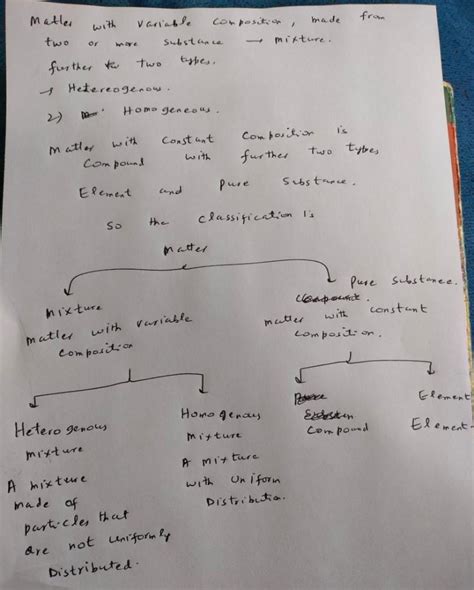 Matter with variable composition, made from
two or more substance → mixture.
further two types.
→ Hetereogenous.
2) Homogeneous.
Matter with constant composition is
compound with further two types
Element and Pure substance.
So the classification is
Matter
Mixture
Matter with variable
composition
Pure substance.
matter with constant
composition.
Heterogenous
mixture
A mixture
made of
particles that
are not uniformly
Distributed.
Homogenous
mixture
A mixture
with uniform
Distribution.
Compound
Element
Element